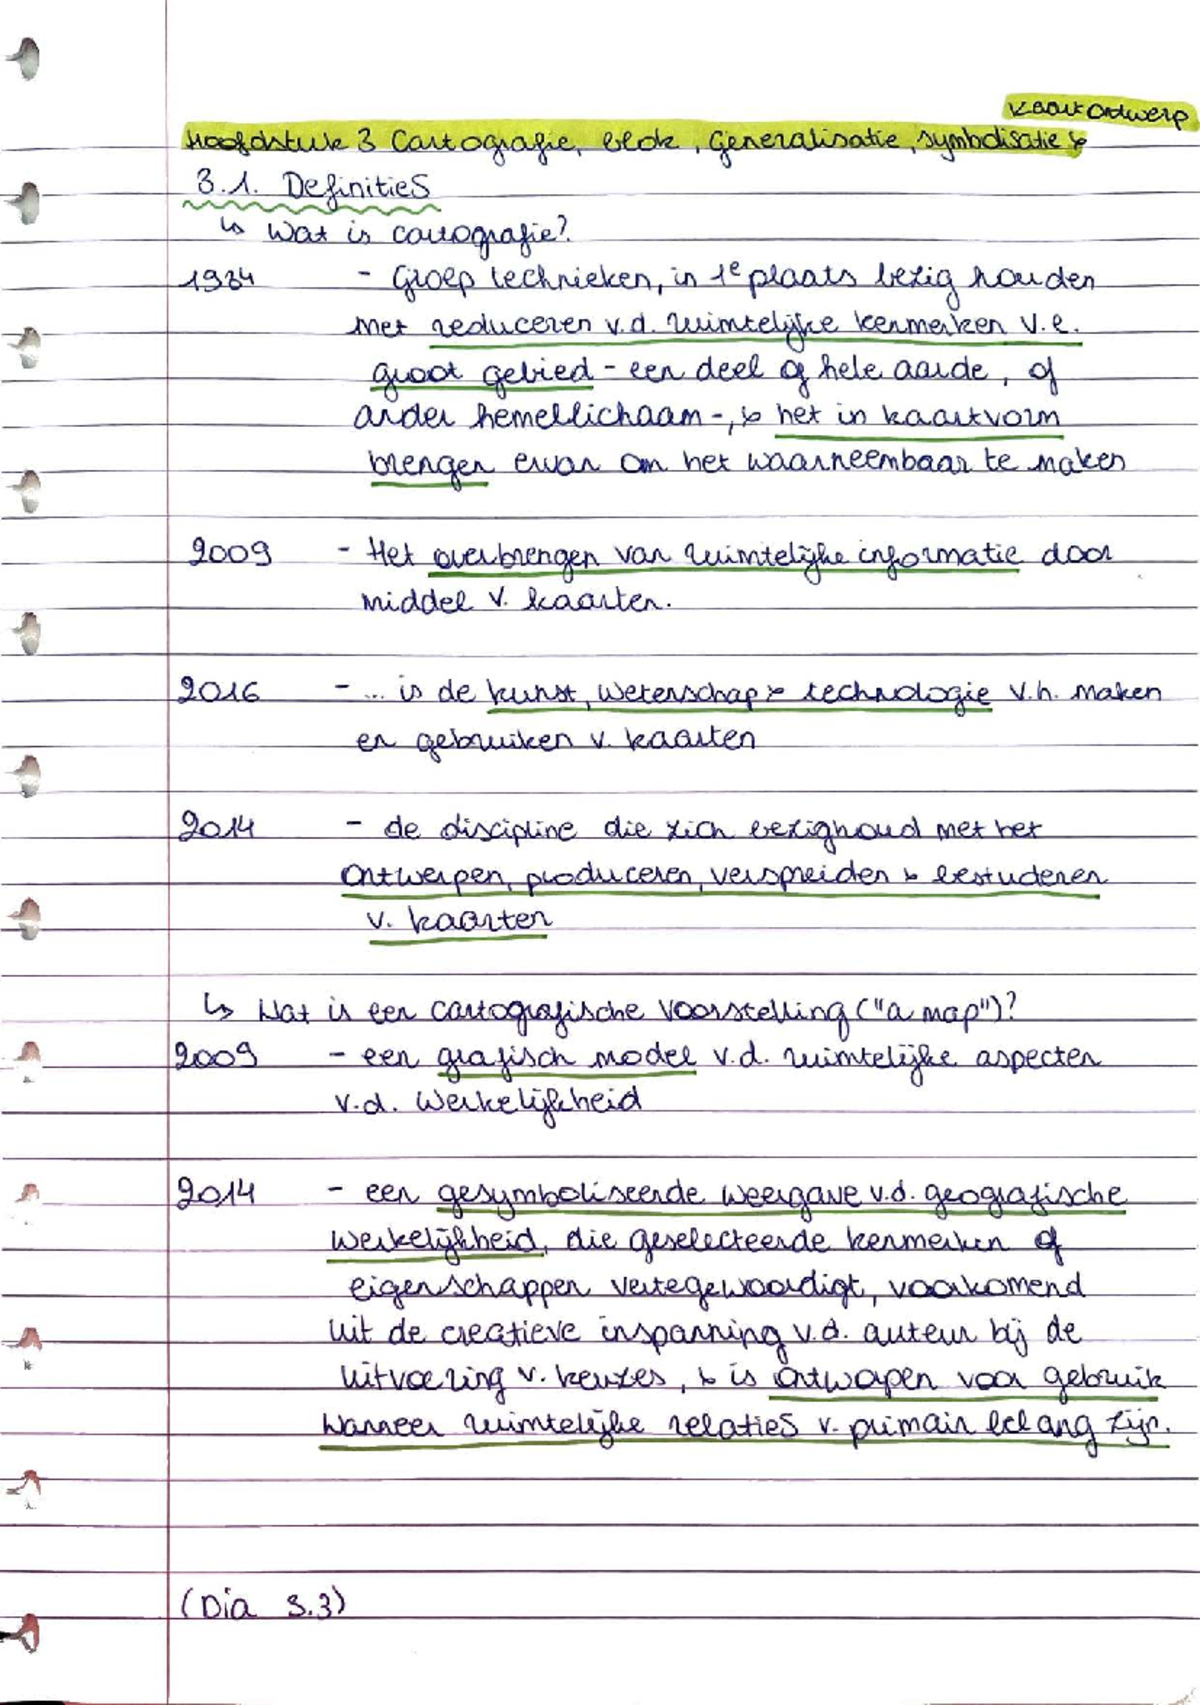 kaartontwerp
Hoofdstuk 3 Cartografie, blok, Generalisatie, symbolisatie &
3.1. Definities
↳ Wat is cartografie?
1984 - Groep technieken, in 1e plaats bezig houden
met reduceren v.d. ruimtelijke kenmerken v.e.
groot gebied - een deel of hele aarde, of
ander hemellichaam -, & het in kaartvorm
brengen ervan om het waarneembaar te maken
2009 - Het overbrengen van ruimtelijke informatie door
middel v. kaarten.
2016 - ... is de kunst, wetenschap & technologie v.h. maken
en gebruiken v. kaarten
2014 - de discipline die zich bezighoud met het
ontwerpen, produceren, verspreiden & bestuderen
v. kaarten
↳ Wat is een cartografische voorstelling ("a map")?
2009 - een grafisch model v.d. ruimtelijke aspecten
v.d. werkelijkheid
2014 - een gesymboliseerde weergave v.d. geografische
werkelijkheid, die geselecteerde kenmerken of
eigenschappen vertegewoordigt, voorkomend
uit de creatieve inspanning v.d. auteur bij de
uitvoering v. keuzes, & is ontworpen voor gebruik
wanneer ruimtelijke relaties v. primair belang zijn.
(Dia 3.3)